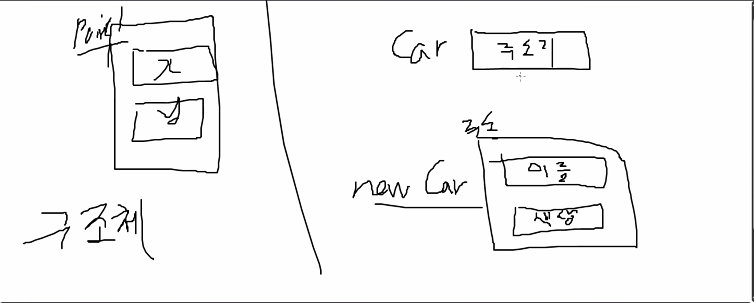 Point
x
y
구조체
Car
주소지
주소
new Car
이름
색상